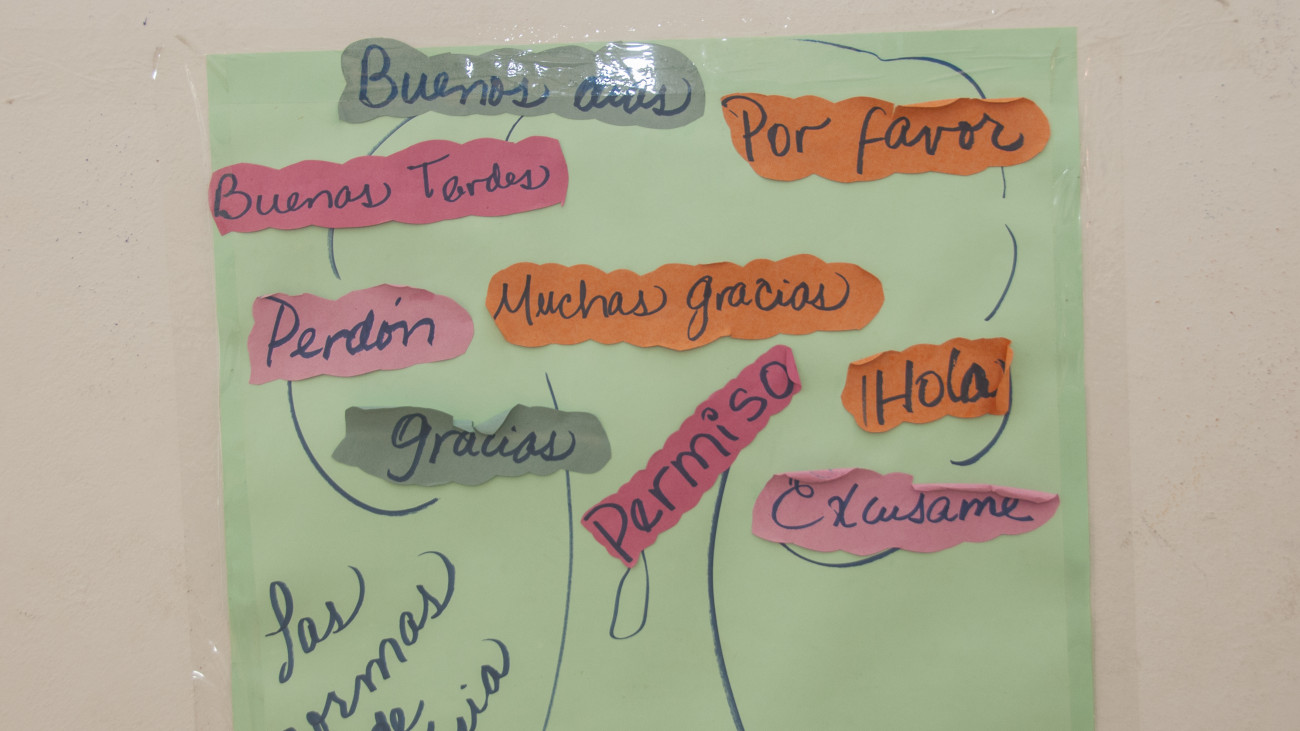 Buenos dias
Por favor
Buenas Tardes
Muchas gracias
Perdón
¡Hola
gracias
Permiso
Excusame
Las
normas
de